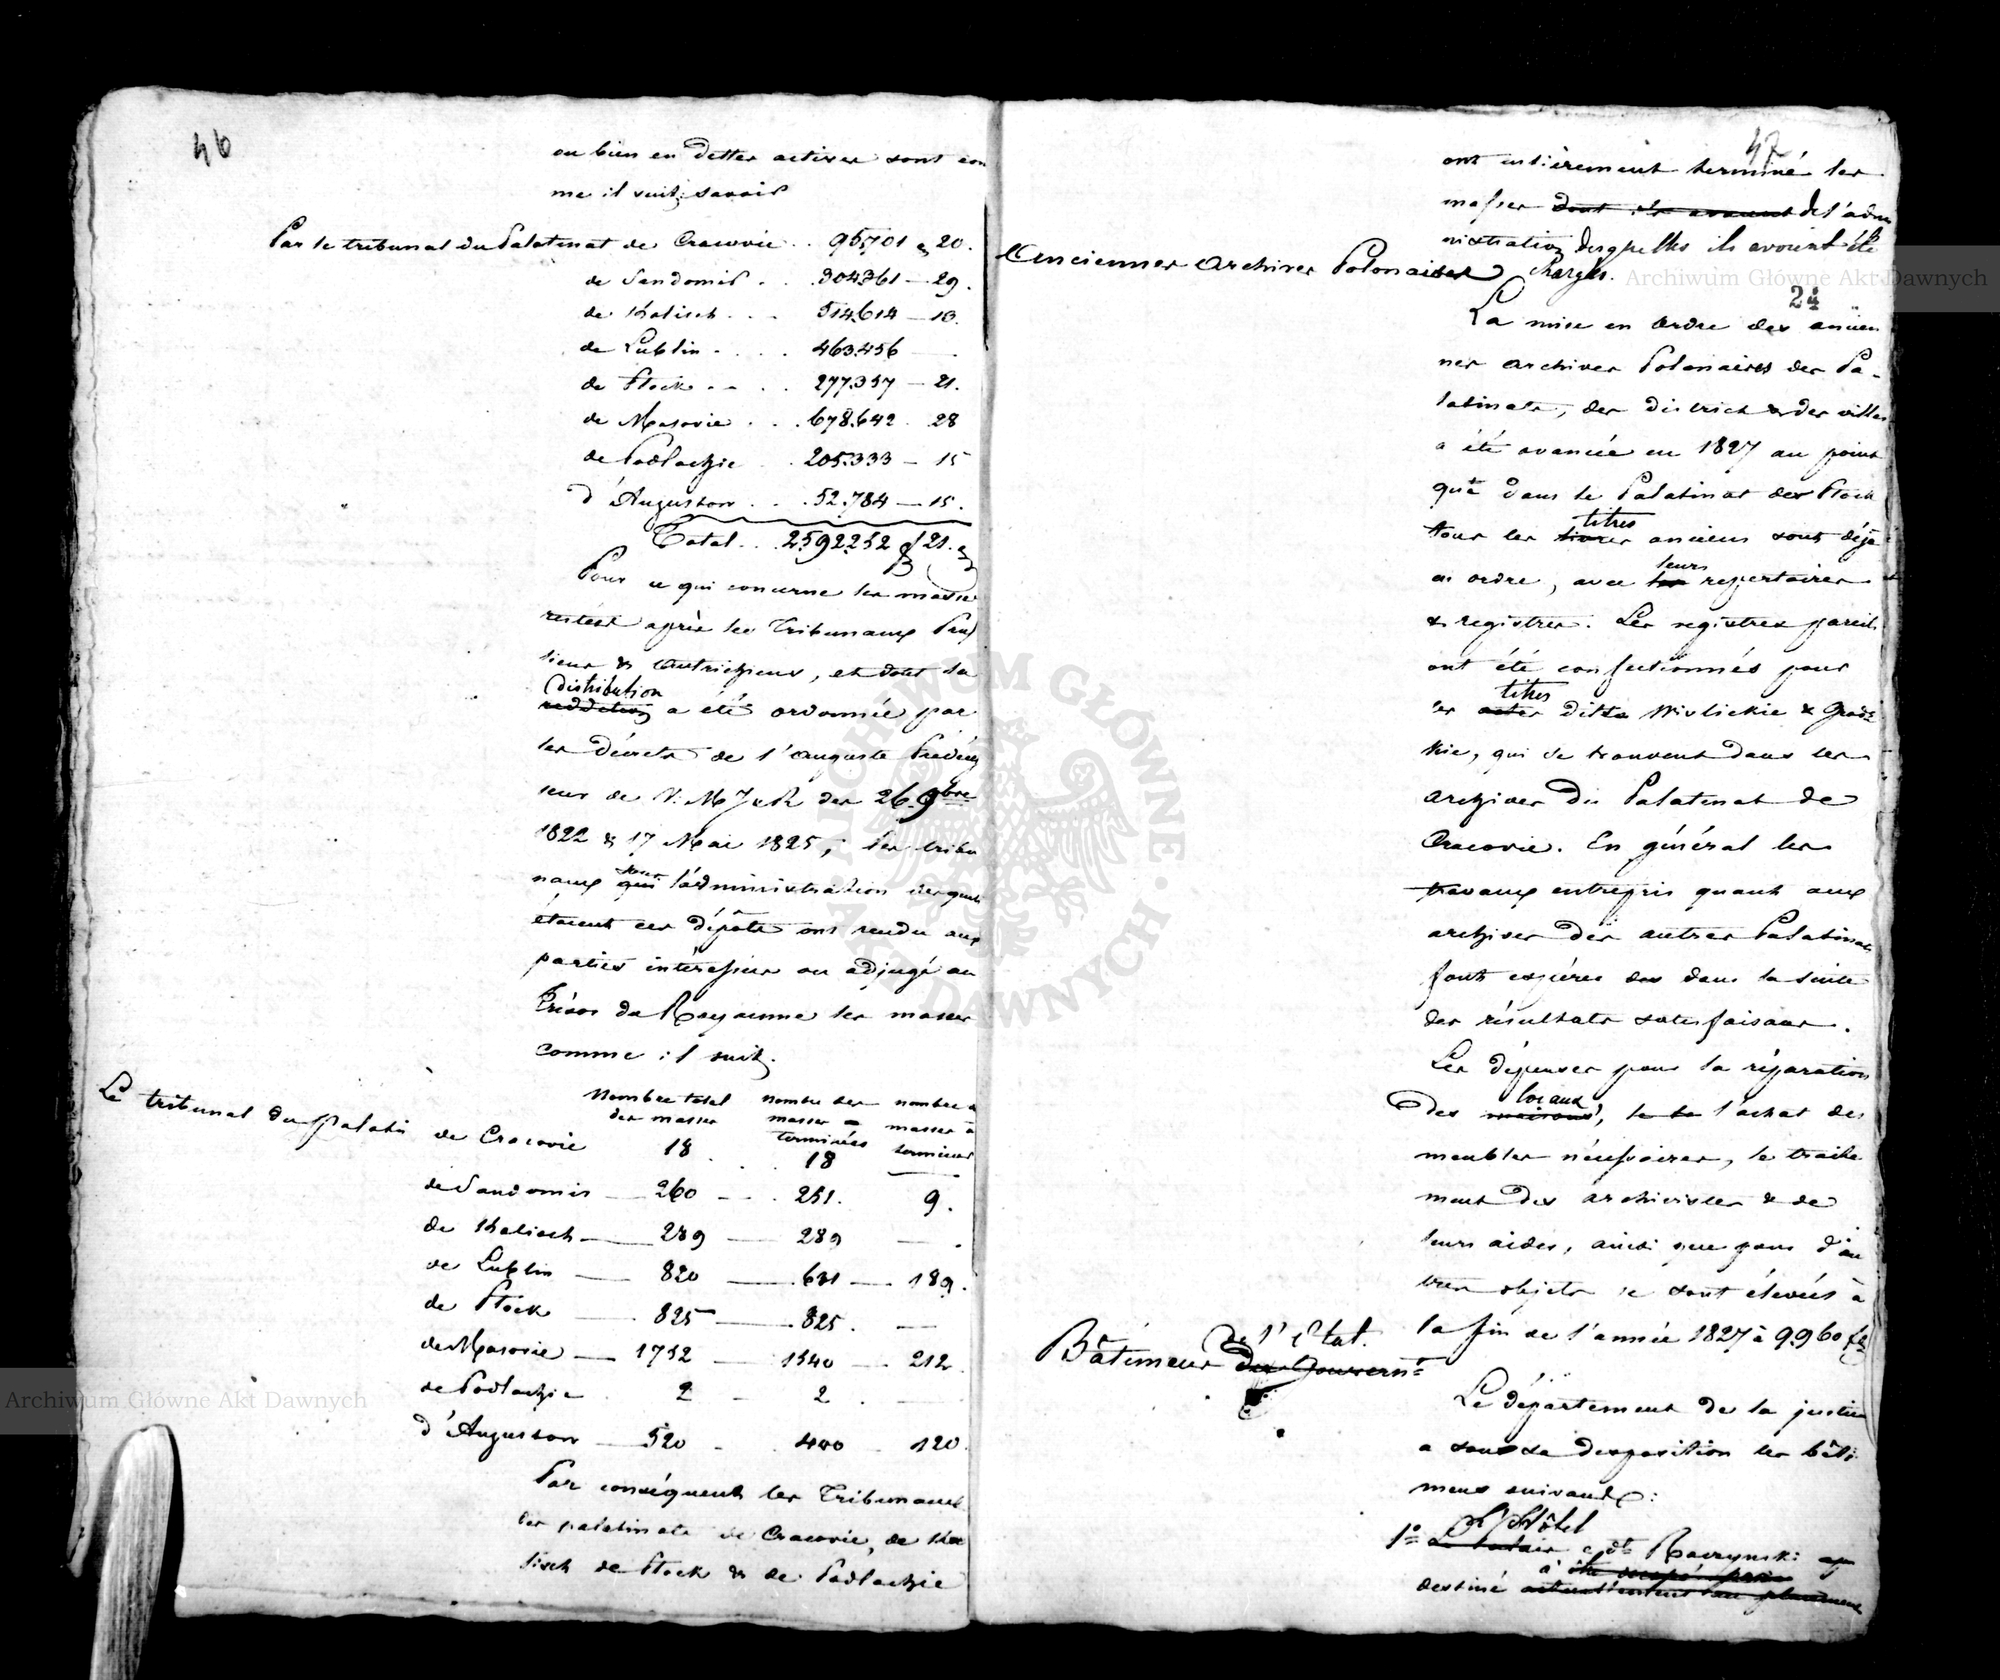 46
ou bien en dettes actives sont com
me il suit, savoir
Par le tribunal du Palatinat de Cracovie . . 95,701 g 20.
de Sandomir . . 304361 — 29.
de Kalisch . . . 514614 — 18.
de Lublin . . . . 463456 —
de Plock . . . . 277357 — 21.
de Masovie . . . 678.642 . 28
de Podlachie . . 205.333 — 15
d'Augustow . . . 52.784 — 15.
Total . . . 2592252 f 21. g
Pour ce qui concerne les masses
restées après les Tribunaux Prus
siens & autrichiens, et dont la
distribution
reddition a été ordonnée par
les décrets de l'auguste Prédéces
seur de V. M. J & R des 26. 9bre
1822 & 17 Mai 1825, les tribu
naux sous qui l'administration desquels
étaient ces dépôts ont rendu aux
parties intéressées ou adjugé au
Trésor du Royaume les masses
comme il suit.
Nombre total des masses
nombre des masses terminées
nombre de masses à terminer
Le tribunal du palati de Cracovie 18 . . 18 —
de Sandomir — 260 — . 251. 9.
de Kalisch — 289 — 289 — .
de Lublin — 820 — 631 — 189.
de Plock — 825 — 825. —
de Masovie — 1752 — 1540 — 212
de Podlachie . 2 — 2 . —
d'Augustow — 520 — 400 — 120.
Par conséquent les Tribunaux
des palatinats de Cracovie, de Ka
lisch de Plock & de Podlachie
47
ont entièrement terminé les
masses dont ils avaient de l'admi
nistration desquelles ils avoient été
chargés.
Anciennes Archives Polonaises
24
La mise en ordre des ancien
nes archives Polonaises des Pa-
latinats, des district & des villes
a été avancée en 1827 au point
que dans le Palatinat de Plock
titres
tous les livres anciens sont déjà
leurs
en ordre, avec les repertoires
& registres. Les registres pareils
ont été confectionnés pour
titres
les actes dites Wislickie & Grodz
kie, qui se trouvent dans les
archives du Palatinat de
Cracovie. En général les
travaux entrepris quant aux
archives des autres Palatinats
font espérer dans la suite
des résultats satisfaisans.
Les dépenses pour la réparation
locaux
des maisons, le la l'achat des
meubles nécessaires, le traite
ment des archivistes & de
leurs aides, ainsi que pour d'au
tres objets se sont élevées à
la fin de l'année 1827 à 9960 f
de l'Etat.
Bâtimens du Gouvernt
Le département de la justice
a sous sa disposition les bâti
mens suivants:
L'Hôtel
1º Le Palais dt Raczynski
à être occupé
destiné actuellement
Archiwum Główne Akt Dawnych
Archiwum Główne Akt Dawnych
ARCHIWUM GŁÓWNE · AKT DAWNYCH ·